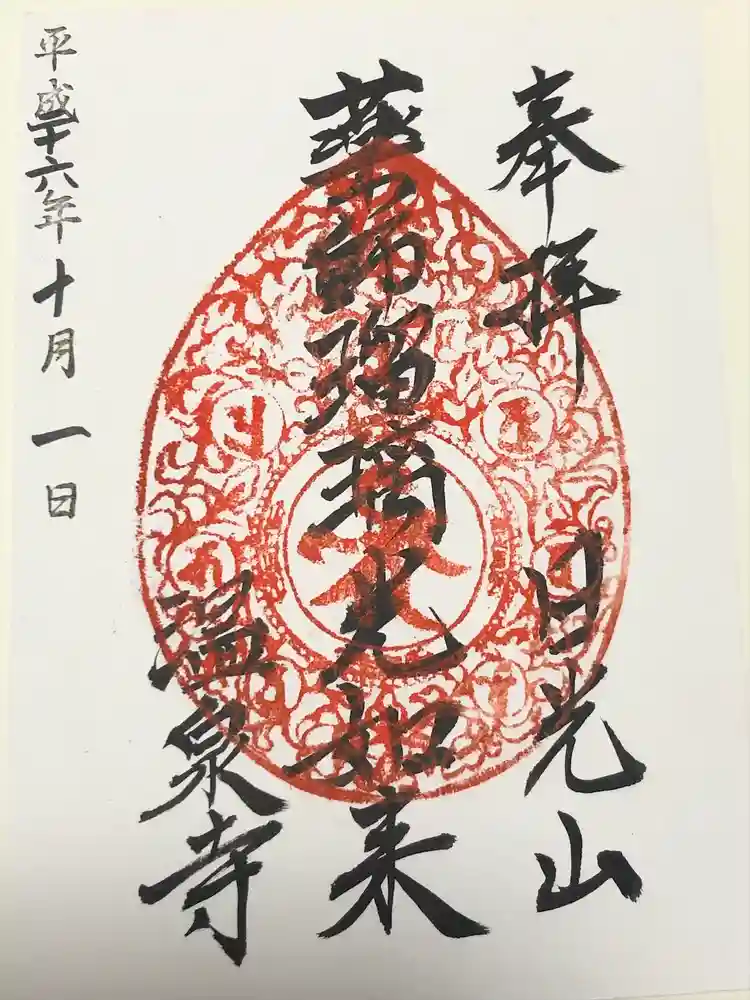 奉拝
日光山
薬師瑠璃光如来
温泉寺
平成二十六年十月一日